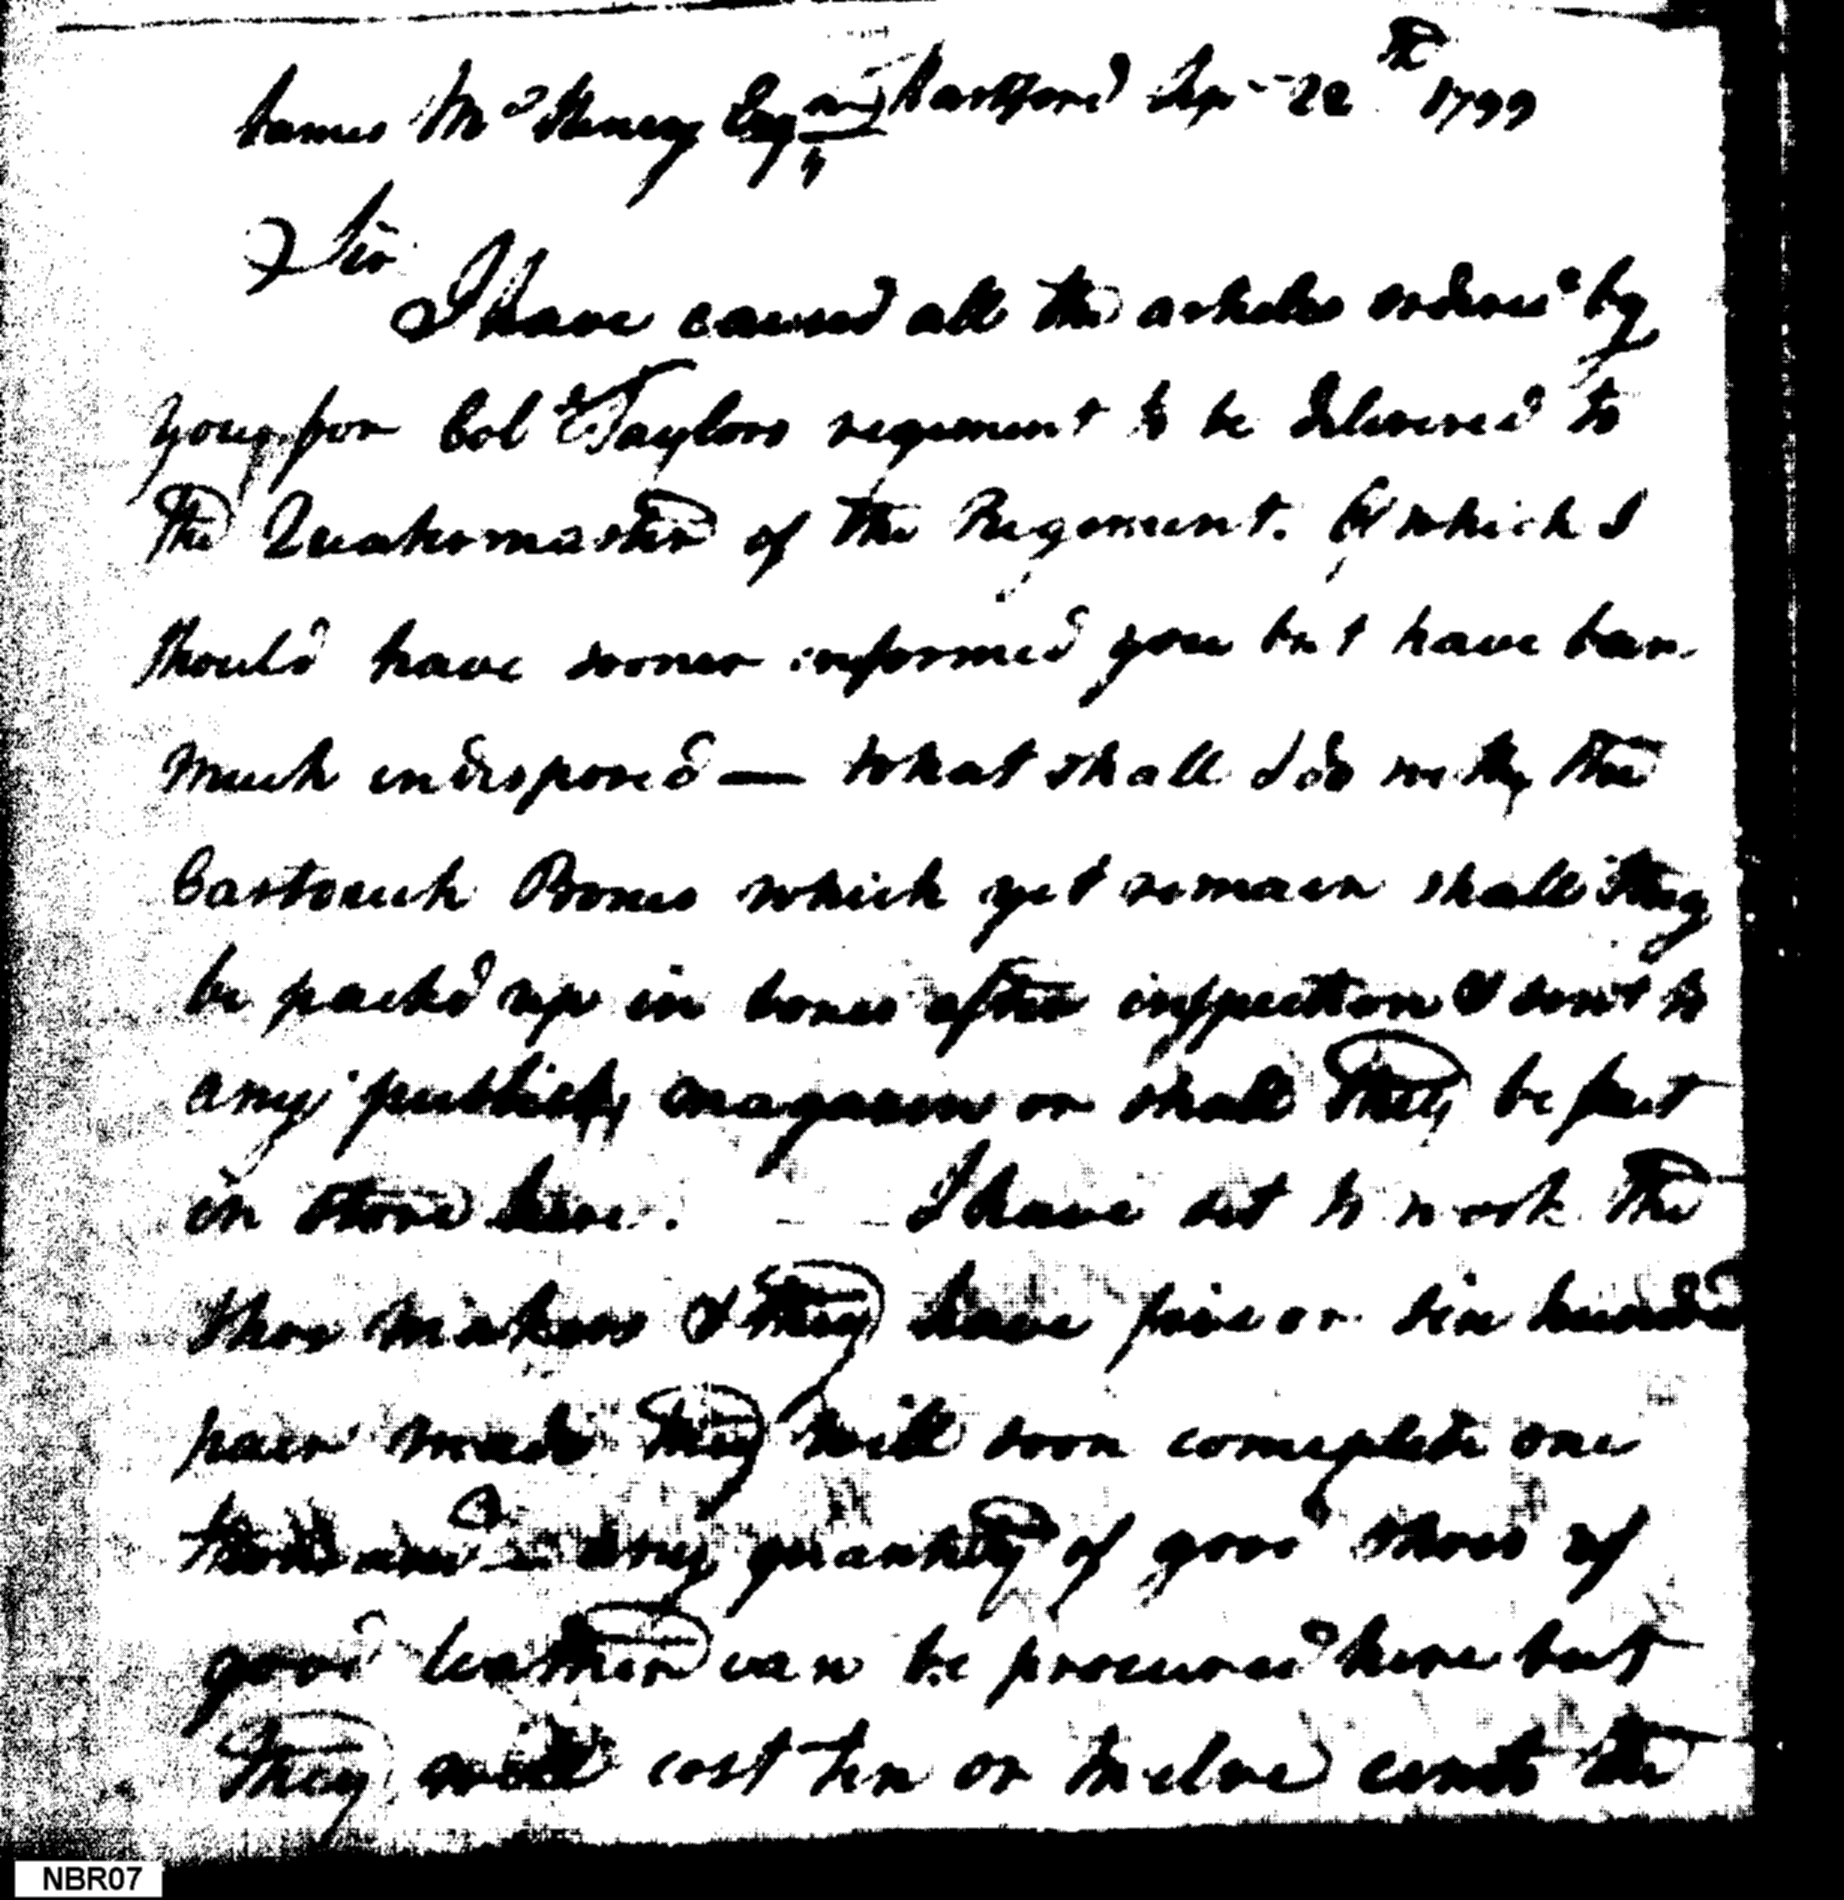 James McHenry Esqr Hartford Sep - 22th 1799
Sir
I have caused all the articles ordered by
you for Col Taylors regiment to be delivered to
the Quartermaster of the Regiment. Of which I
should have sooner informed you but have been
much indisposed — What shall I do with the
Cartouch Boxes which yet remain shall they
be packd up in boxes after inspection & sent to
any publick magazine or shall they be put
in store here. I have set to work the
shoe makers & they have five or six hundred
pair made they will soon compleate one
thousand – any quantity of good shoes of
good leather can be procured here but
they will cost ten or twelve cents the
NBR07